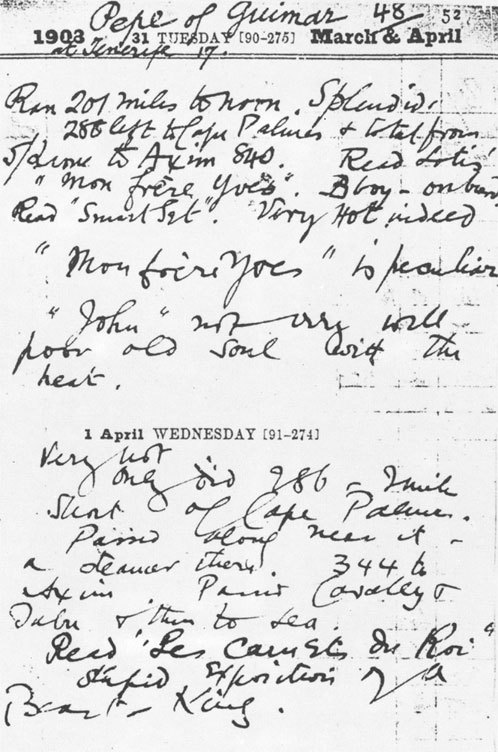 Pepe of Guimar 48/ 52
1903 31 TUESDAY [90-275] March & April
at Tenerife 17.
Ran 201 miles to noon. Splendid.
286 left to Cape Palmas & total from
S/Leone to Axim 840. Read Loti's
"Mon frère Yves". B boy - on board
Read "Smart Set". Very Hot indeed
"Mon frère Yves" is peculiar
"John" not very well
poor old soul with the
heat.
1 April WEDNESDAY [91-274]
Very hot
Only did 286 - 2 mile
Short of Cape Palmas.
Passed along near it -
a steamer there. 344 to
Axim. Passed Cavally &
Tabu & then to sea.
Read "Les Carnets du Roi"
stupid Exposition of a
Beast - King.